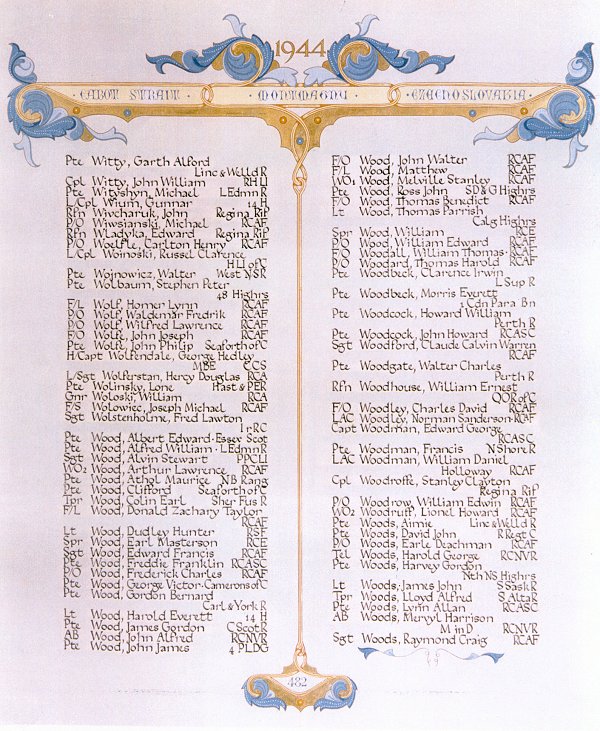 1944
CABOT STRAIT · MONTMAGNY · CZECHOSLOVAKIA
Pte Witty, Garth Alford
Linc & Welld R
Cpl Witty, John William RHLI
Pte Wityshyn, Michael L Edmn R
L/Cpl Wium, Gunnar 14 H
Rfn Wivcharuk, John Regina Rif
P/O Wiwsianski, Michael RCAF
Rfn Wladyka, Edward Regina Rif
P/O Woelfle, Carlton Henry RCAF
L/Cpl Woinoski, Russel Clarence
HLI of C
Pte Wojnowicz, Walter West NSR
Pte Wolbaum, Stephen Peter
48 Highrs
F/L Wolf, Homer Lynn RCAF
P/O Wolf, Waldemar Fredrik RCAF
P/O Wolf, Wilfred Lawrence RCAF
F/O Wolfe, John Joseph RCAF
Pte Wolfe, John Philip Seaforth of C
H/Capt Wolfendale, George Hedley
MBE CCS
L/Sgt Wolferstan, Hercy Douglas RCA
Pte Wolinsky, Lone Hast & PER
Gnr Woloski, William RCA
F/S Wolowiec, Joseph Michael RCAF
Sgt Wolstenholme, Fred Lawton
Ir RC
Pte Wood, Albert Edward · Essex Scot
Pte Wood, Alfred William · L Edmn R
Sgt Wood, Alvin Stewart PPCLI
WO2 Wood, Arthur Lawrence RCAF
Pte Wood, Athol Maurice NB Rang
Pte Wood, Clifford Seaforth of C
Tpr Wood, Colin Earl Sher Fus R
F/L Wood, Donald Zachary Taylor
RCAF
Lt Wood, Dudley Hunter RSF
Spr Wood, Earl Masterson RCE
Sgt Wood, Edward Francis RCAF
Pte Wood, Freddie Franklin RCASC
P/O Wood, Frederick Charles RCAF
Pte Wood, George Victor · Camerons of C
Pte Wood, Gordon Bernard
Carl & York R
Lt Wood, Harold Everett 14 H
Pte Wood, James Gordon C Scot R
AB Wood, John Alfred RCNVR
Pte Wood, John James 4 PLDG
F/O Wood, John Walter RCAF
F/L Wood, Matthew RCAF
WO1 Wood, Melville Stanley RCAF
Pte Wood, Ross John SD & G Highrs
F/O Wood, Thomas Benedict RCAF
Lt Wood, Thomas Parrish
Calg Highrs
Spr Wood, William RCE
P/O Wood, William Edward RCAF
F/O Woodall, William Thomas · RCAF
P/O Woodard, Thomas Harold RCAF
Pte Woodbeck, Clarence Irwin
L Sup R
Pte Woodbeck, Morris Everett
1 Cdn Para Bn
Pte Woodcock, Howard William
Perth R
Pte Woodcock, John Howard RCASC
Sgt Woodford, Claude Calvin Warren
RCAF
Pte Woodgate, Walter Charles
Perth R
Rfn Woodhouse, William Ernest
QOR of C
F/O Woodley, Charles David RCAF
LAC Woodley, Norman Sanderson · RCAF
Capt Woodman, Edward George
RCASC
Pte Woodman, Francis N Shore R
LAC Woodman, William Daniel
Holloway RCAF
Cpl Woodroffe, Stanley Clayton
Regina Rif
P/O Woodrow, William Edwin RCAF
WO2 Woodruff, Lionel Howard RCAF
Pte Woods, Aimie Linc & Welld R
Pte Woods, David John R Regt C
P/O Woods, Earle Deachman RCAF
Tel Woods, Harold George RCNVR
Pte Woods, Harvey Gordon
Nth NS Highrs
Lt Woods, James John S Sask R
Tpr Woods, Lloyd Alfred S Alta R
Pte Woods, Lynn Allan RCASC
AB Woods, Mervyl Harrison
M in D RCNVR
Sgt Woods, Raymond Craig RCAF
482